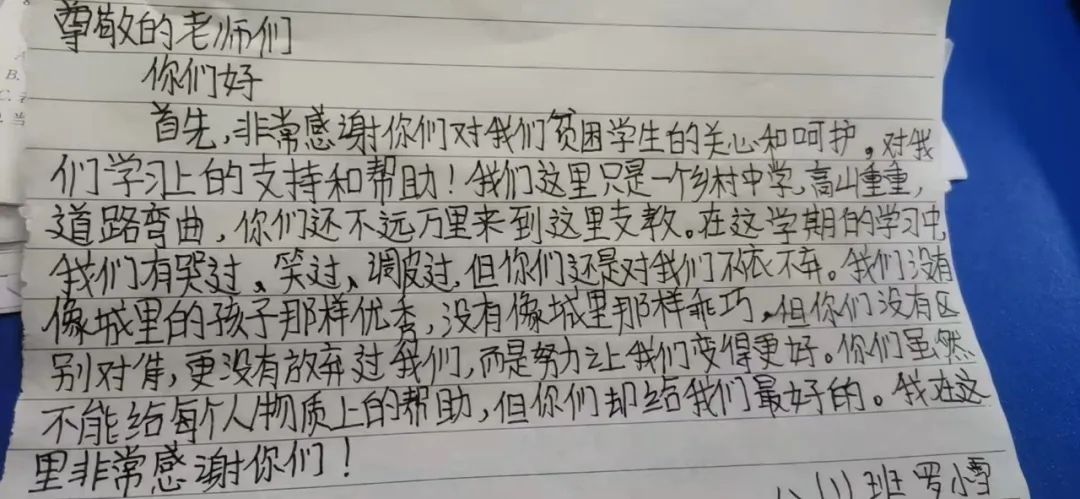 尊敬的老师们
你们好
首先,非常感谢你们对我们贫困学生的关心和呵护。对我
们学习上的支持和帮助!我们这里只是一个乡村中学,高山重重,
道路弯曲,你们还不远万里来到这里支教。在这学期的学习中,
我们有哭过、笑过、调皮过,但你们还是对我们不依不弃。我们没有
像城里的孩子那样优秀,没有像城里那样乖巧,但你们没有区
别对待,更没有放弃过我们,而是努力让我们变得更好。你们虽然
不能给每个人物质上的帮助,但你们却给我们最好的。我在这
里非常感谢你们!
班 罗小雪
B.